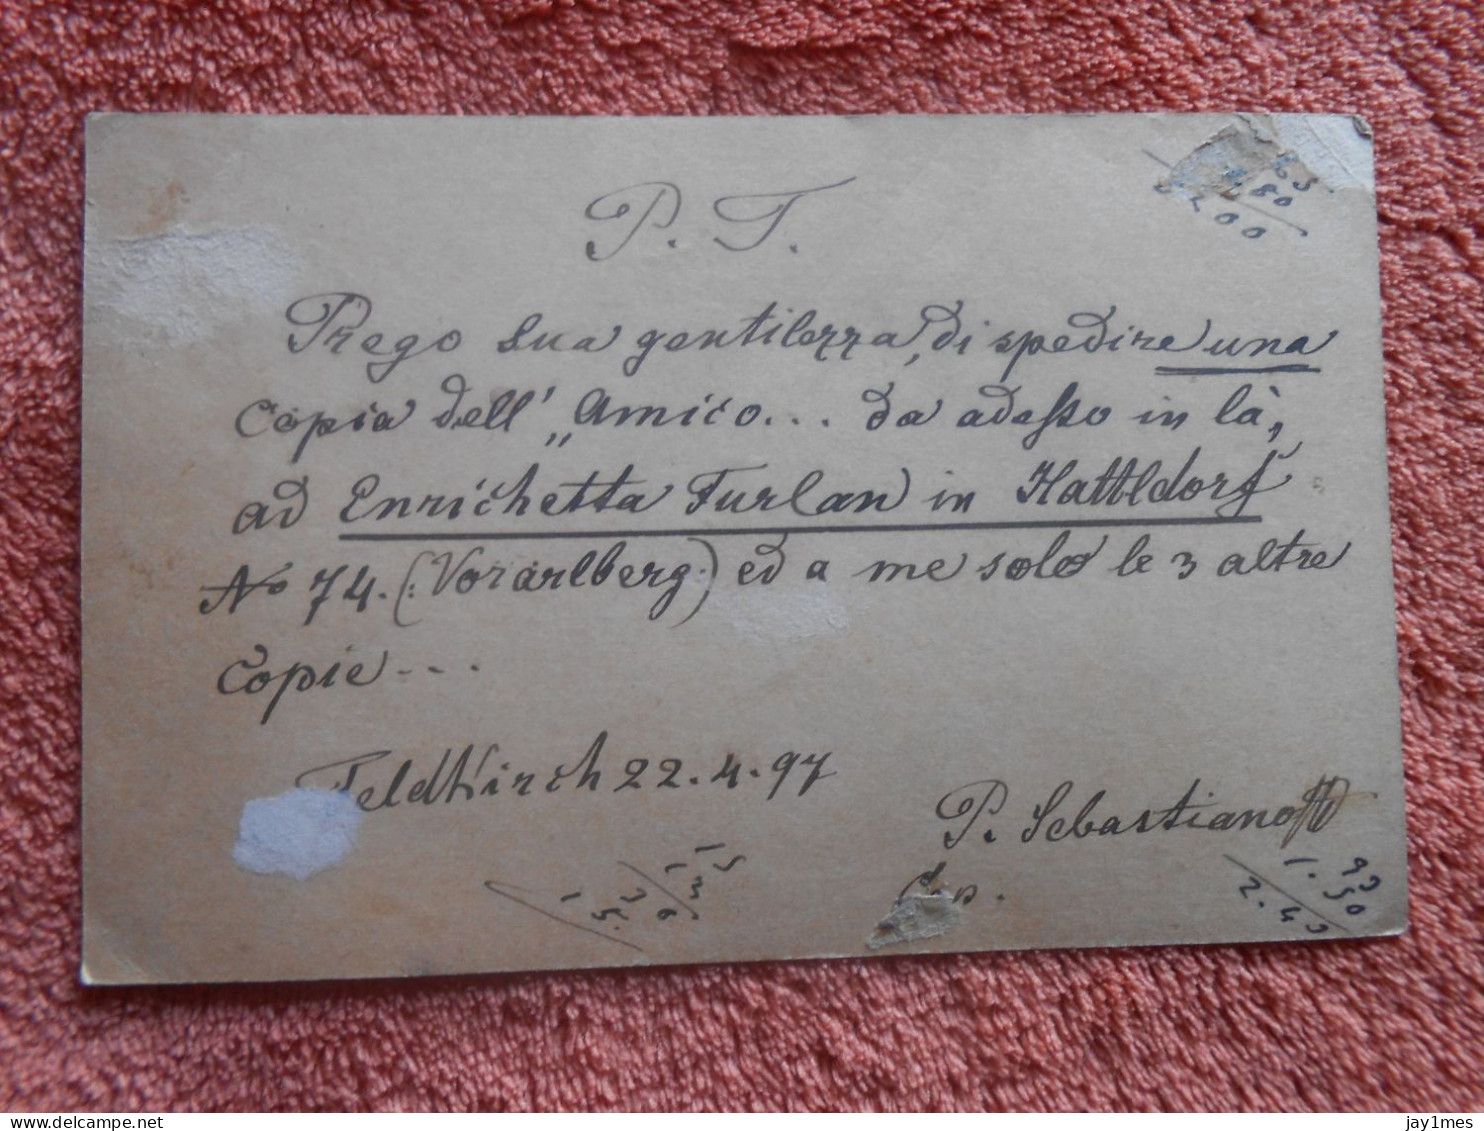 P. T.
Prego Sua gentilezza, di spedire una
copia dell' „Amico... da adesso in là,
ad Enrichetta Furlan in Hattldorf
No 74. (: Vorarlberg:) ed a me solo le 3 altre
copie...
Feldkirch 22.4.97
P. Sebastiano
63
80
200
1.50
2.43
delcampe.net
jay1mes